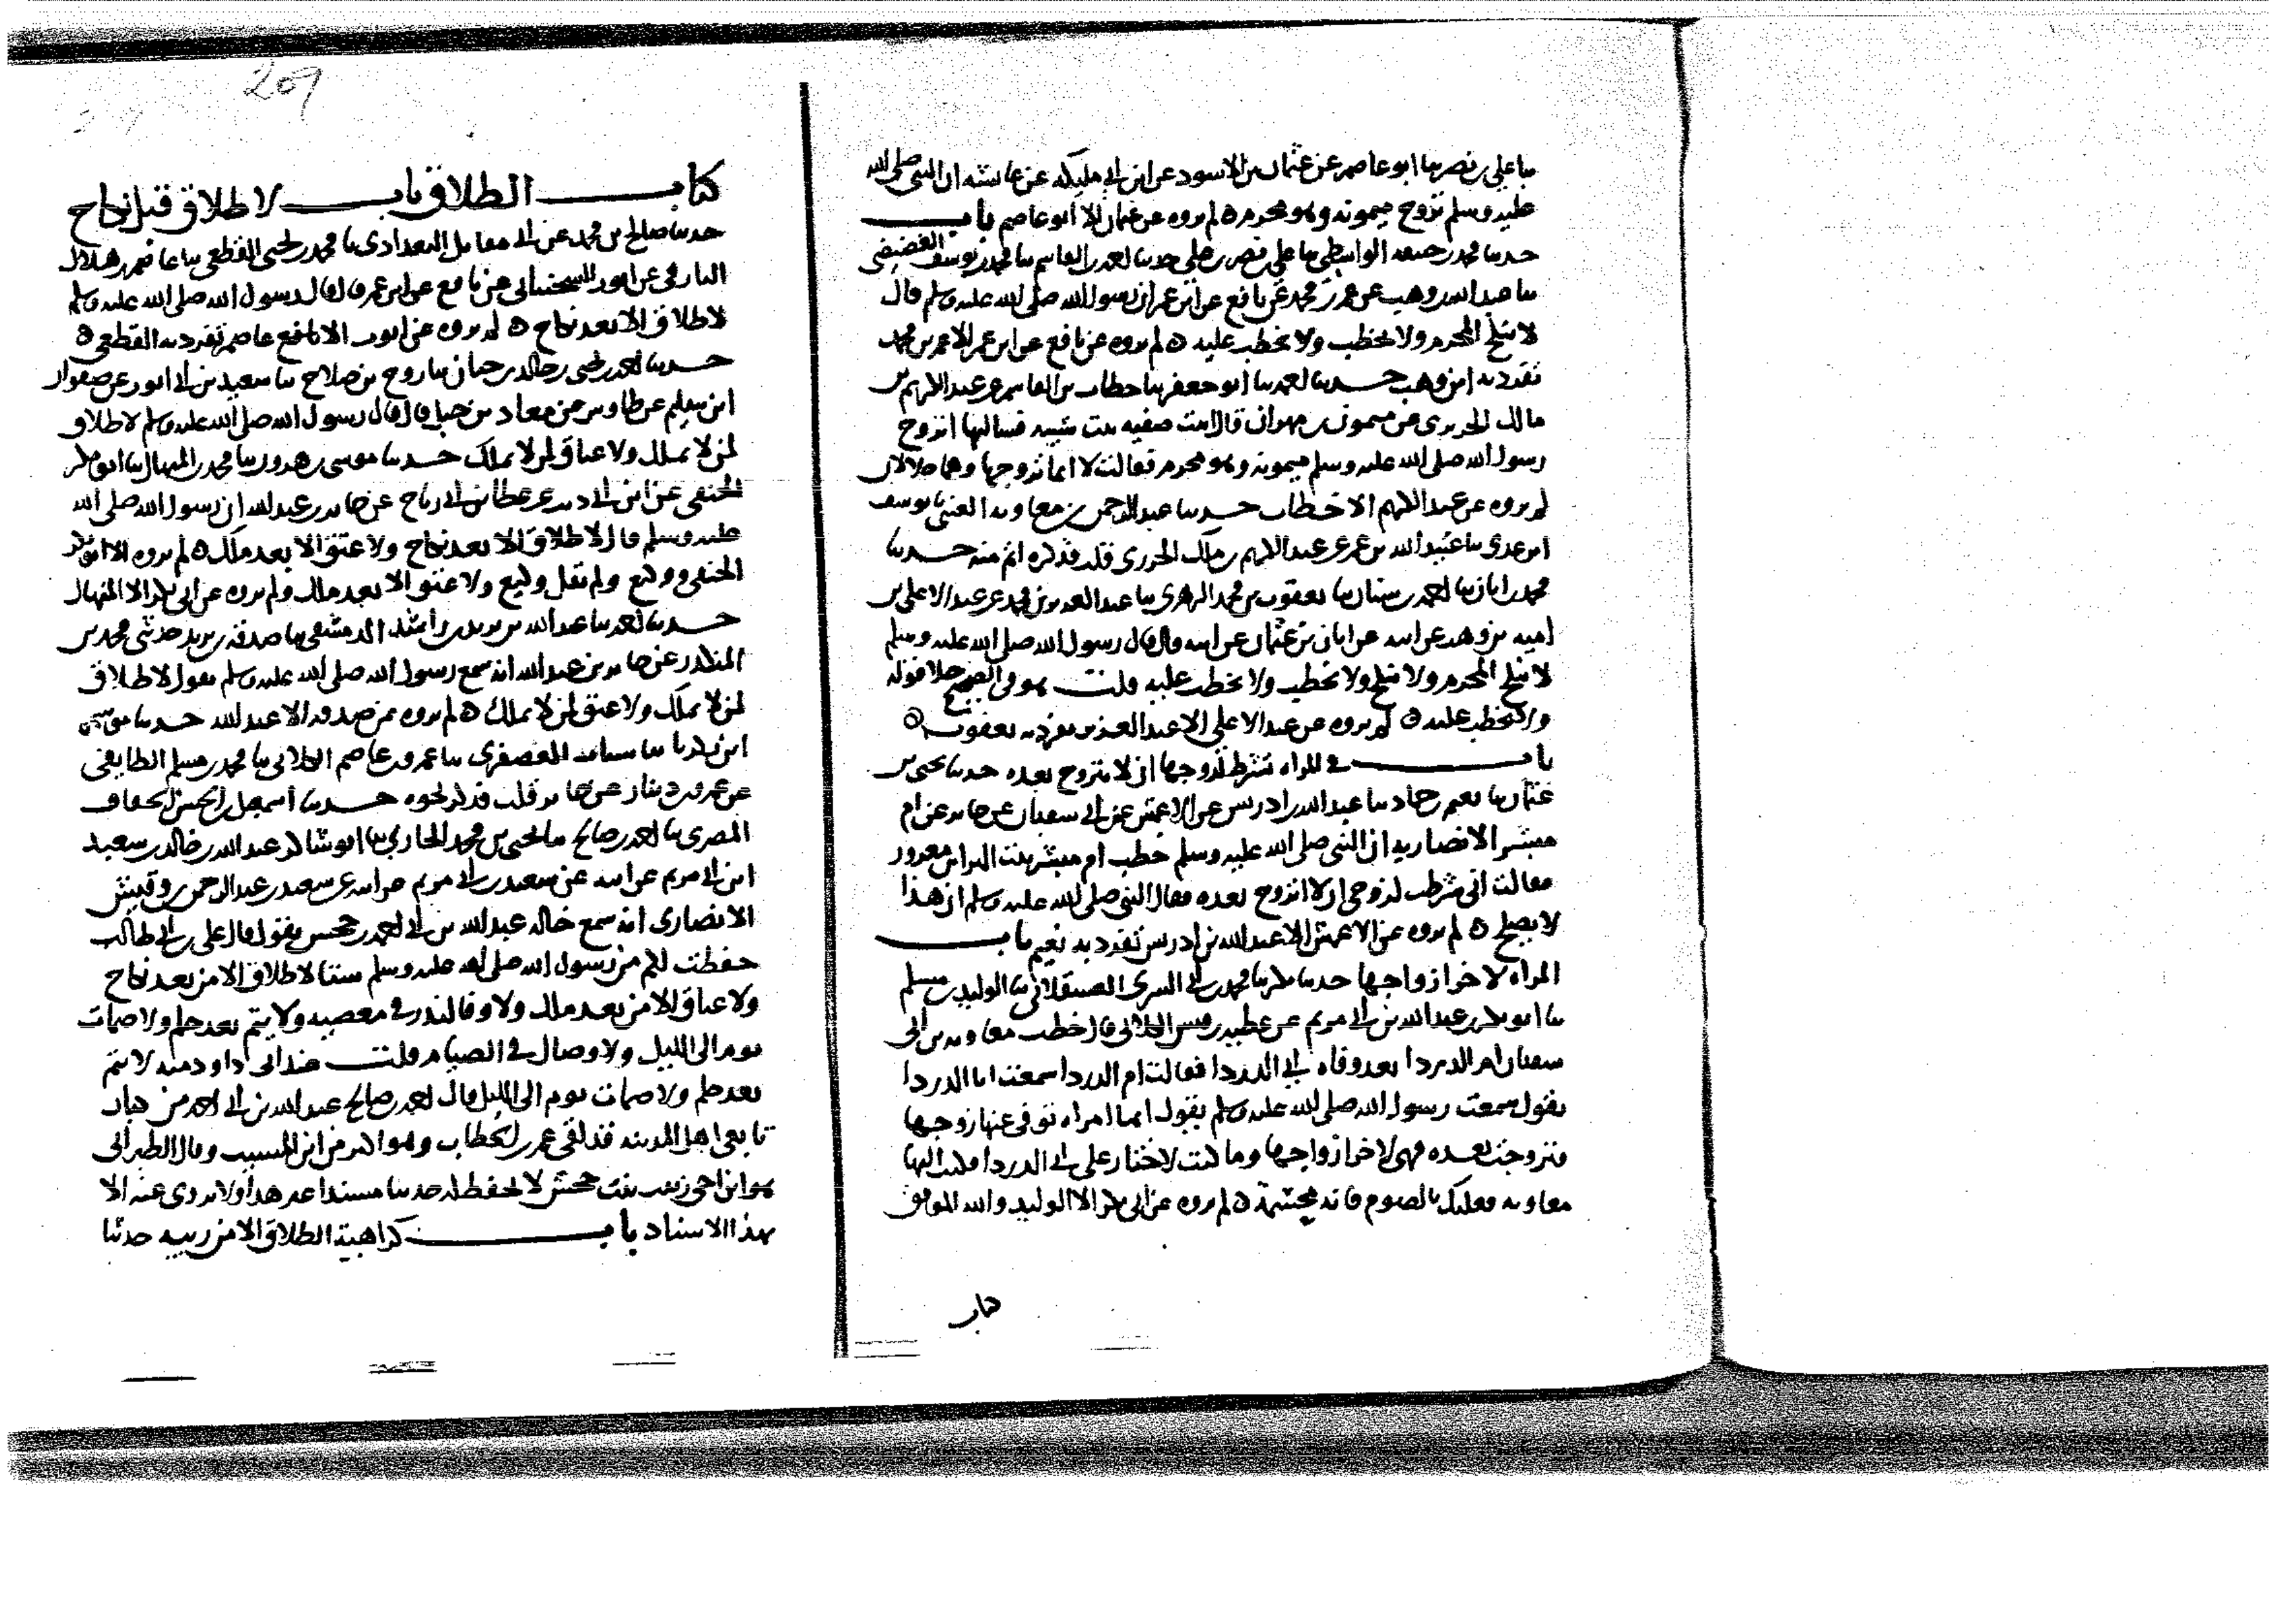 ثنا علي بن نصر ثنا ابو عاصم عن عثمان بن الاسود عن ابن ابي مليكه عن عائشه ان النبي صلى الله
عليه وسلم تزوج ميمونه وهو محرم ه لم يروه عن عثمان الا ابو عاصم باب
حدثنا محمد بن حنيفه الواسطي ثنا علي بن نصر بن علي حدثنا احمد بن القاسم ثنا محمد بن يوسف الغضيضي
ثنا عبد الله بن وهب عن عمر بن محمد عن نافع عن ابن عمر ان رسول الله صلى الله عليه وسلم قال
لا ينكح المحرم ولا يخطب ولا يخطب عليه ه لم يروه عن نافع عن ابن عمر الا عمر بن محمد
تفرد به ابن وهب حدثنا احمد ثنا ابو جعفر ثنا خطاب بن القاسم عن عبد الكريم بن
مالك الجزري عن ميمون بن مهران قال اتيت صفيه بنت شيبه فسالتها اتزوج
رسول الله صلى الله عليه وسلم ميمونه وهو محرم فقالت لا انما تزوجها وهما حلالان
لم يروه عن عبد الكريم الا خطاب حدثنا عبد الرحمن بن معاويه العتبي ثنا يوسف
ابن عدي ثنا عبيد الله بن عمرو عن عبد الكريم بن مالك الجزري قلت فذكره اتم منه حدثنا
محمد بن ابان ثنا احمد بن سنان ثنا يعقوب بن محمد الزهري ثنا عبد العزيز بن محمد عن عبد الاعلى بن
اميه بن وهب عن ابيه عن ابان بن عثمان عن ابيه قال قال رسول الله صلى الله عليه وسلم
لا ينكح المحرم ولا ينكح ولا يخطب ولا يخطب عليه قلت هو في الصحيح خلا قوله
ولا يخطب عليه ه لم يروه عن عبد الاعلى الا عبد العزيز تفرد به يعقوب ه
باب في المراه تشترط لزوجها ان لا تتزوج بعده حدثنا يحيى بن
عثمان ثنا نعيم بن حماد ثنا عبد الله بن ادريس عن الاعمش عن ابي سفيان عن جابر عن ام
مبشر الانصاريه ان النبي صلى الله عليه وسلم خطب ام مبشر بنت البرا بن معرور
فقالت اني شرطت لزوجي ان لا اتزوج بعده فقال النبي صلى الله عليه وسلم ان هذا
لا يصلح ه لم يروه عن الاعمش الا عبد الله بن ادريس تفرد به نعيم باب
المراه لاخر ازواجها حدثنا بكر ثنا محمد بن ابي السري العسقلاني ثنا الوليد بن مسلم
ثنا ابو بكر بن عبد الله بن ابي مريم عن عطيه بن قيس الكلابي قال خطب معاويه بن ابي
سفيان ام الدردا بعد وفاه ابي الدردا فقالت ام الدردا سمعت ابا الدردا
يقول سمعت رسول الله صلى الله عليه وسلم يقول ايما امراه توفي عنها زوجها
فتزوجت بعده فهي لاخر ازواجها وما كنت لاختار على ابي الدردا فكتب اليها
معاويه فعليك بالصوم فانه محسمة ه لم يروه عن ابي بكر الا الوليد والله الموفق
كتاب
209
كتاب الطلاق باب لا طلاق قبل نكاح
حدثنا صالح بن محمد بن ابي مقاتل البغدادي ثنا محمد بن يحيى القطعي ثنا عاصم بن هلال
البارقي عن ايوب السختياني عن نافع عن ابن عمر قال قال رسول الله صلى الله عليه وسلم
لا طلاق الا بعد نكاح ه لم يروه عن ايوب الا عاصم تفرد به القطعي ه
حدثنا احمد بن يحيى بن خالد بن حيان ثنا روح بن صلاح ثنا سعيد بن ابي ايوب عن صفوان
ابن سليم عن طاوس عن معاذ بن جبل قال قال رسول الله صلى الله عليه وسلم لا طلاق
لمن لا يملك ولا عتاق لمن لا يملك حدثنا موسى بن هرون ثنا محمد بن المنهال ثنا ابو بكر
الحنفي عن ابن ابي ذئب عن عطا بن ابي رباح عن جابر بن عبد الله ان رسول الله صلى الله
عليه وسلم قال لا طلاق الا بعد نكاح ولا عتق الا بعد ملك ه لم يروه الا ابو بكر
الحنفي ووكيع ولم يقل وكيع ولا عتق الا بعد ملك ولم يروه عن ابي بكر الا المنهال
حدثنا احمد ثنا عبد الله بن يزيد بن راشد الدمشقي ثنا صدقه بن يزيد حدثني محمد بن
المنكدر عن جابر بن عبد الله انه سمع رسول الله صلى الله عليه وسلم يقول لا طلاق
لمن لا يملك ولا عتق لمن لا يملك ه لم يروه عن صدقه الا عبد الله حدثنا موسى
ابن زكريا ثنا شباب العصفري ثنا عمرو بن عاصم الكلابي ثنا محمد بن مسلم الطايفي
عن عمرو بن دينار عن جابر قلت فذكر نحوه حدثنا اسمعيل بن الحسن الخفاف
المصري ثنا احمد بن صالح ثنا يحيى بن محمد الجاري ثنا ابو شاكر عبد الله بن خالد بن سعيد
ابن ابي مريم عن ابيه عن سعيد بن ابي مريم عن ابيه عن سعيد بن عبد الرحمن بن رقيش
الانصاري انه سمع خاله عبد الله بن ابي احمد بن جحش يقول قال علي بن ابي طالب
حفظت لكم من رسول الله صلى الله عليه وسلم ستا لا طلاق الا من بعد نكاح
ولا عتاق الا من بعد ملك ولا وفا لنذر في معصيه ولا يتم بعد حلم ولا صمات
يوم الى الليل ولا وصال في الصيام قلت عند ابي داود منه لا يتم
بعد حلم ولا صمات يوم الى الليل قال احمد بن صالح عبد الله بن ابي احمد من كبار
تابعي اهل المدينه قد لقي عمر بن الخطاب وهو اكبر من ابن المسيب وقال الطبراني
هو ابن اخي زينب بنت جحش لا يحفظ له حديثا مسندا غير هذا ولا يروى عنه الا
بهذا الاسناد باب كراهية الطلاق الا من ريبه حدثنا